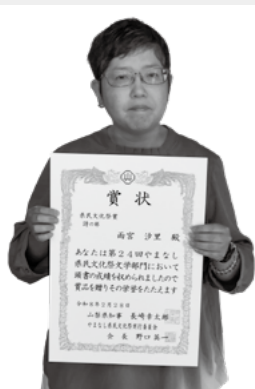 賞状
県民文化祭賞
詩の部
雨宮 汐里 殿
あなたは第24回やまなし
県民文化祭文学部門において
頭書の成績を収められましたので
賞品を贈りその学誉をたたえます
山梨県知事 長崎幸太郎
やまなし県民文化祭実行委員会
会長 野口英一